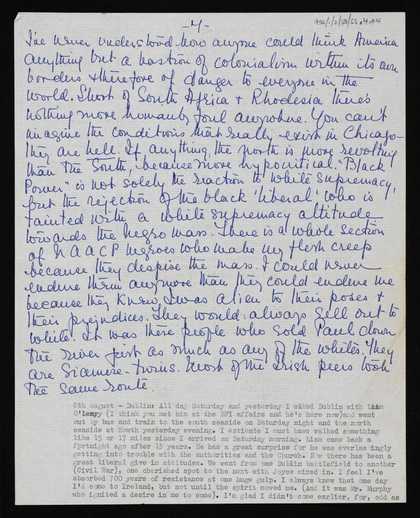 -4-
I've never understood how anyone could think America
anything but a bastion of colonialism within its own
borders & therefore of danger to everyone in the
world. Short of South Africa & Rhodesia there's
nothing more humanly foul anywhere. You can't
imagine the conditions that really exist in Chicago -
they are hell. If anything the north is more revolting
than the South, because more hypocritical. "Black
Power" is not solely the reaction to white supremacy,
but the rejection of the black 'liberal' who is
tainted with a white supremacy attitude
towards the Negro mass. There is a whole section
of NAACP negroes who make my flesh creep
because they despise the mass. I could never
endure them anymore than they could endure me
because they knew I was alien to their poses &
their prejudices. They would always sell out to
white. It was these people who sold Paul down
the river just as much as any of the whites. They
are Siamese-twins. Most of the Irish peers took
the same route.
8th august - Dublin: All day Saturday and yesterday I walked Dublin with
O'Leary (I think you met him at the BFI affairs and he's here now) and went
out by bus and train to the south seaside on Saturday night and the north
seaside at Howth yesterday evening. I estimate I must have walked something
like 15 or 17 miles since I arrived on Saturday morning. Liam came back a
fortnight ago after 18 years. He had a great surprise for he was everlastingly
getting into trouble with the authorities and the Church. Now there has been a
great liberal give in attitudes. We went from one Dublin battlefield to another
(Civil War), one cherished spot to the next with Joyce mixed in. I feel I've
absorbed 700 years of resistance at one huge gulp. I always knew that one day
I'd come to Ireland, but not until the spirit moved me. (And it was Mr. Murphy
who ignited a desire in me to come). I'm glad I didn't come earlier, for, odd as